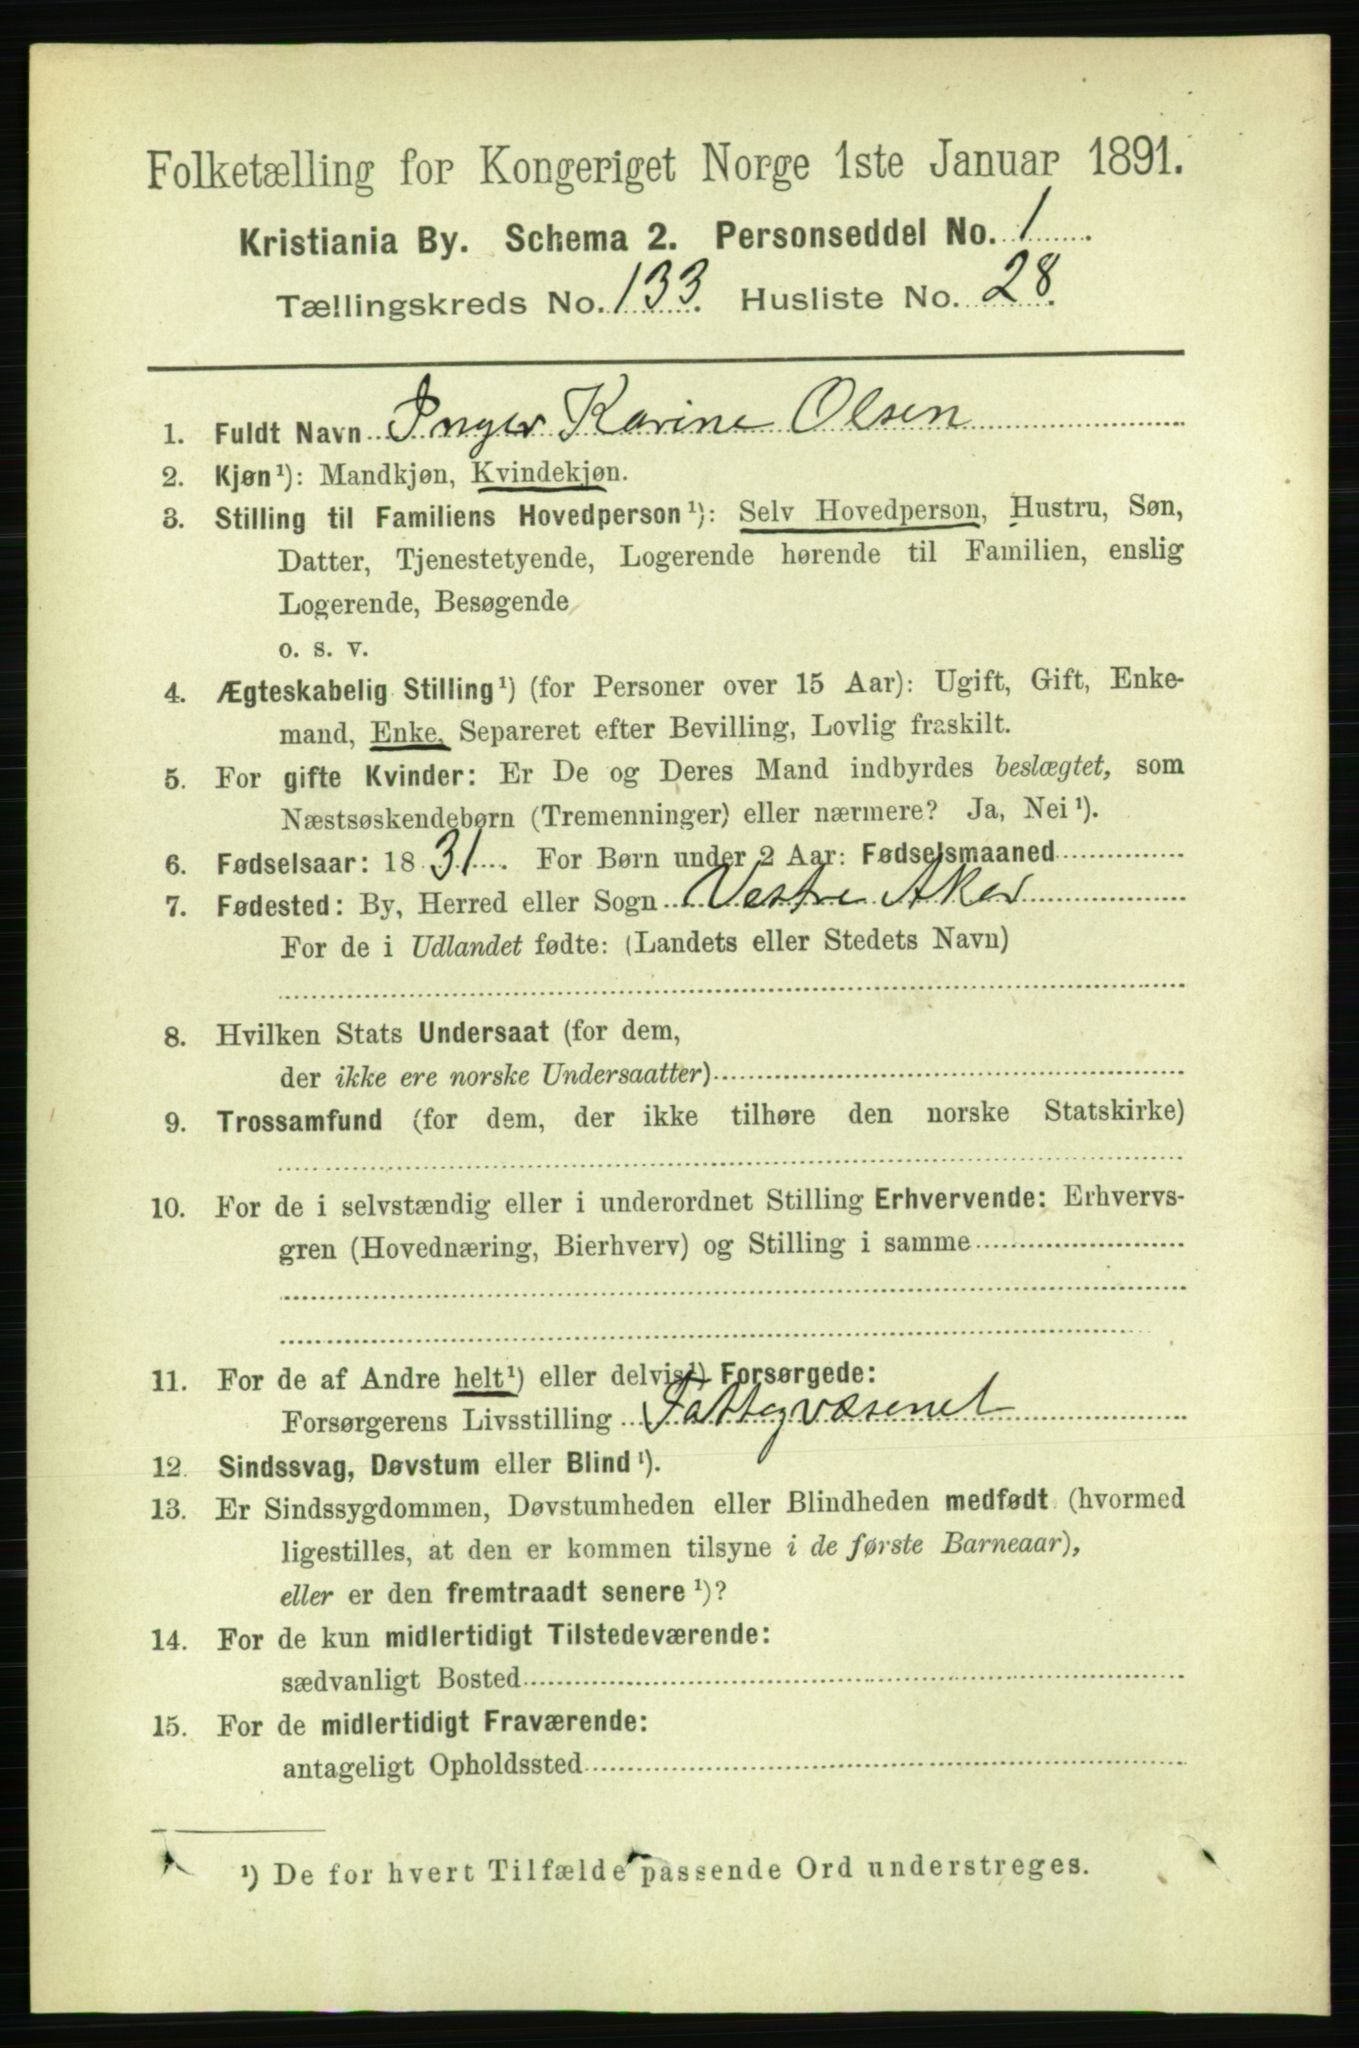 Folketælling for Kongeriget Norge 1ste Januar 1891.
Kristiania By. Schema 2. Personseddel No. 1
Tællingskreds No. 133. Husliste No. 28.
1. Fuldt Navn Inger Karine Olsen
2. Kjøn¹): Mandkjøn, Kvindekjøn.
3. Stilling til Familiens Hovedperson¹): Selv Hovedperson, Hustru, Søn,
Datter, Tjenestetyende, Logerende hørende til Familien, enslig
Logerende, Besøgende
o. s. v.
4. Ægteskabelig Stilling¹) (for Personer over 15 Aar): Ugift, Gift, Enke-
mand, Enke, Separeret efter Bevilling, Lovlig fraskilt.
5. For gifte Kvinder: Er De og Deres Mand indbyrdes beslægtet, som
Næstsøskendebørn (Tremenninger) eller nærmere? Ja, Nei¹).
6. Fødselsaar: 1831. For Børn under 2 Aar: Fødselsmaaned
7. Fødested: By, Herred eller Sogn Vestre Aker
For de i Udlandet fødte: (Landets eller Stedets Navn)
8. Hvilken Stats Undersaat (for dem,
der ikke ere norske Undersaatter)
9. Trossamfund (for dem, der ikke tilhøre den norske Statskirke)
10. For de i selvstændig eller i underordnet Stilling Erhvervende: Erhvervs-
gren (Hovednæring, Bierhverv) og Stilling i samme
11. For de af Andre helt¹) eller delvist¹) Forsørgede:
Forsørgerens Livsstilling Fattigvæsenet
12. Sindssvag, Døvstum eller Blind¹).
13. Er Sindssygdommen, Døvstumheden eller Blindheden medfødt (hvormed
ligestilles, at den er kommen tilsyne i de første Barneaar),
eller er den fremtraadt senere¹)?
14. For de kun midlertidigt Tilstedeværende:
sædvanligt Bosted
15. For de midlertidigt Fraværende:
antageligt Opholdssted
¹) De for hvert Tilfælde passende Ord understreges.